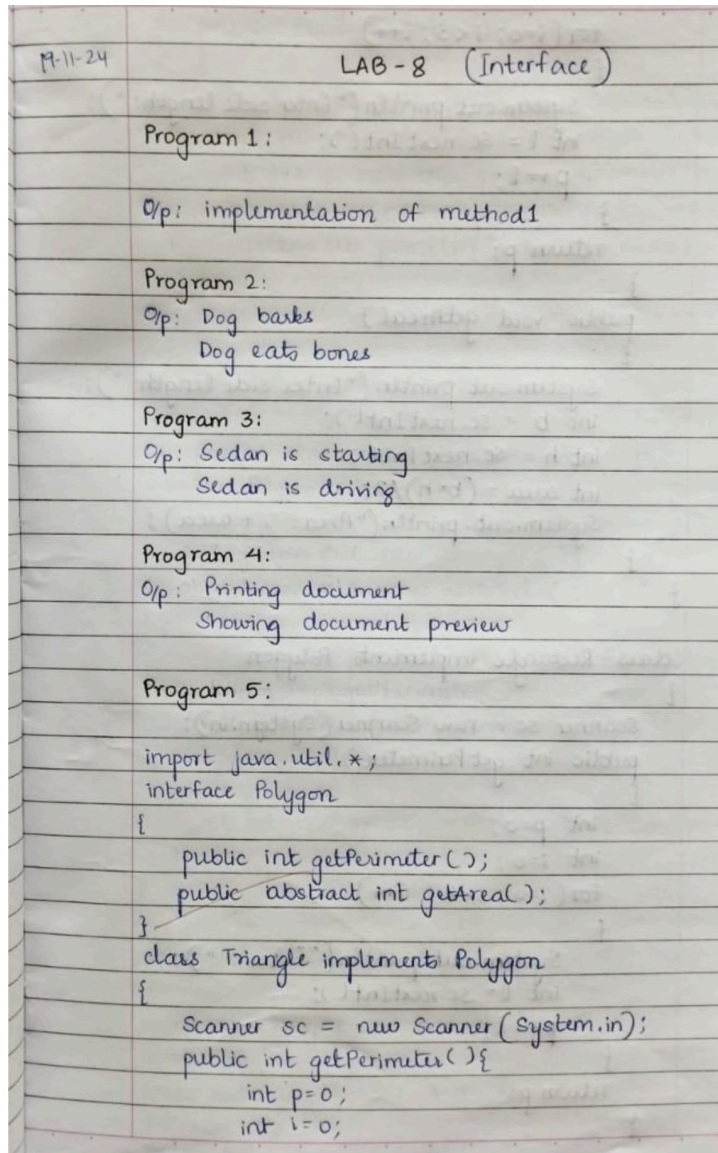 19-11-24
LAB-8 (Interface)
Program 1:
O/p: implementation of method1
Program 2:
O/p: Dog barks
Dog eats bones
Program 3:
O/p: Sedan is starting
Sedan is driving
Program 4:
O/p: Printing document
Showing document preview
Program 5:
import java.util.*;
interface Polygon
{
public int getPerimeter();
public abstract int getArea();
}
class Triangle implements Polygon
{
Scanner sc = new Scanner(System.in);
public int getPerimeter(){
int p=0;
int i=0;